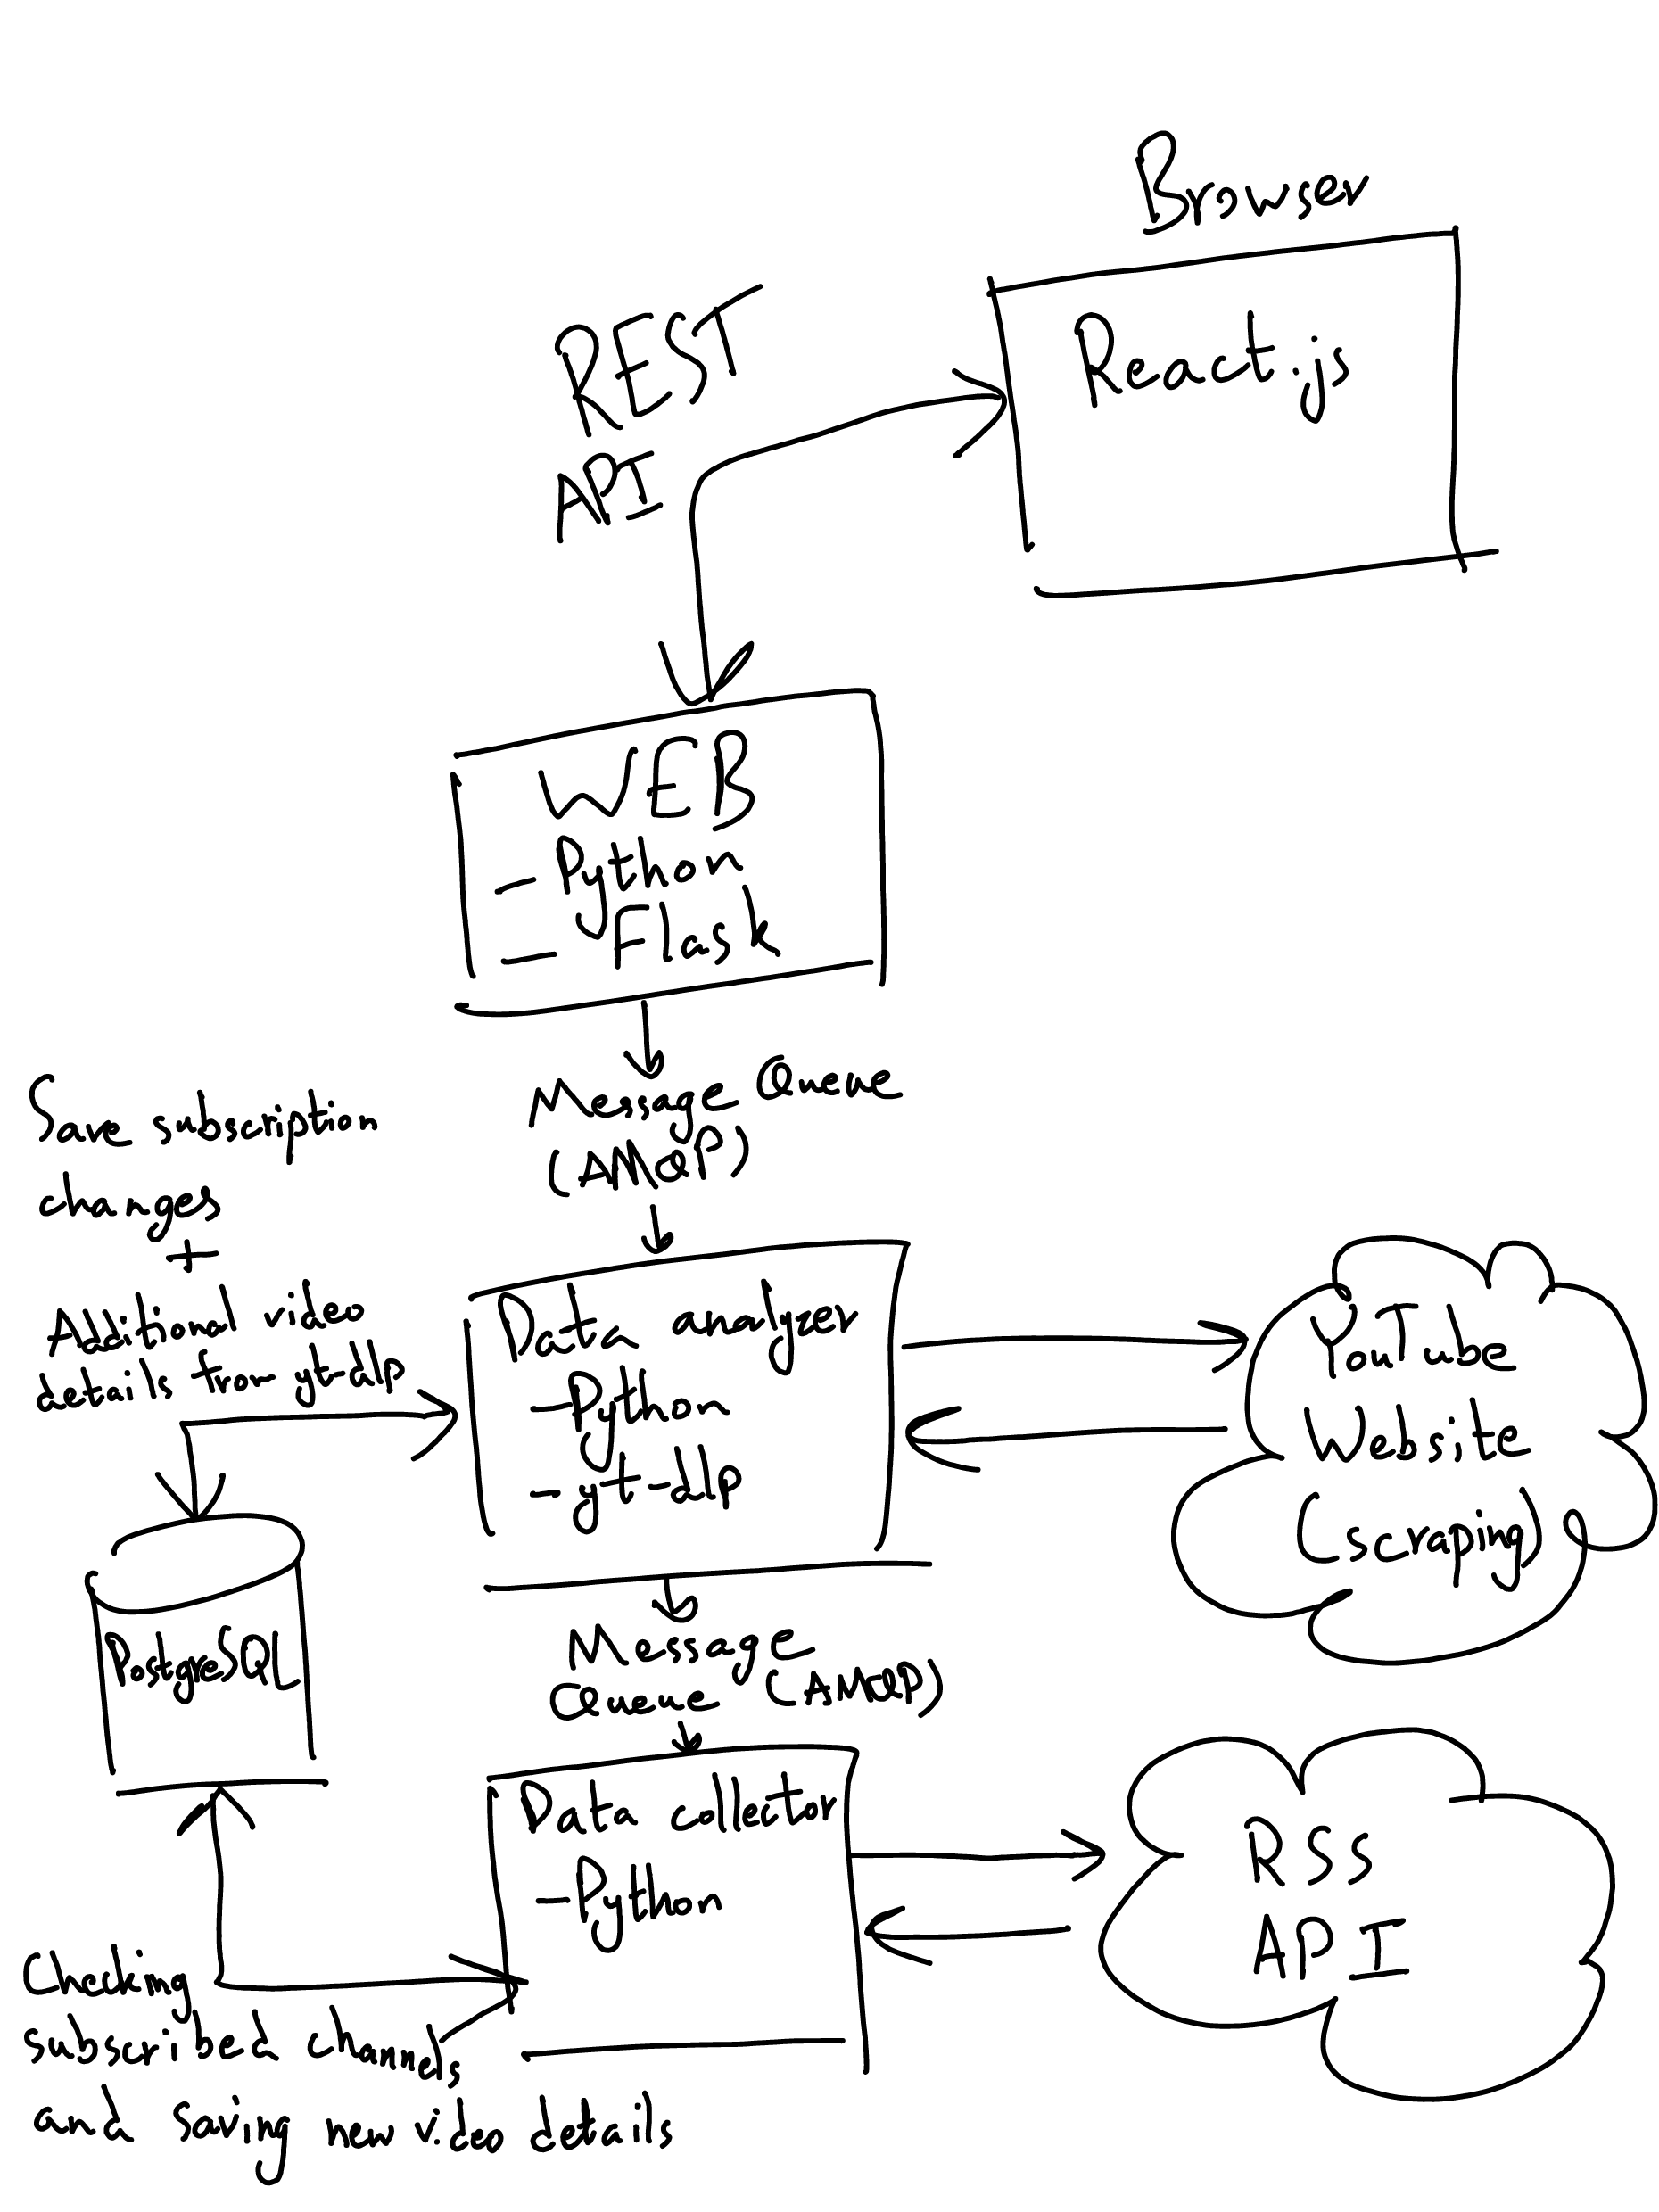 Browser
React.js
REST
API
WEB
- Python
- Flask
Message Queue
(AMQP)
Save subscription
changes
+
Additional video
details from yt-dlp
Data analyzer
- Python
- yt-dlp
YouTube
Website
(scraping)
PostgreSQL
Message
Queue (AMQP)
Data collector
- Python
RSS
API
Checking
subscribed channels
and saving new video details